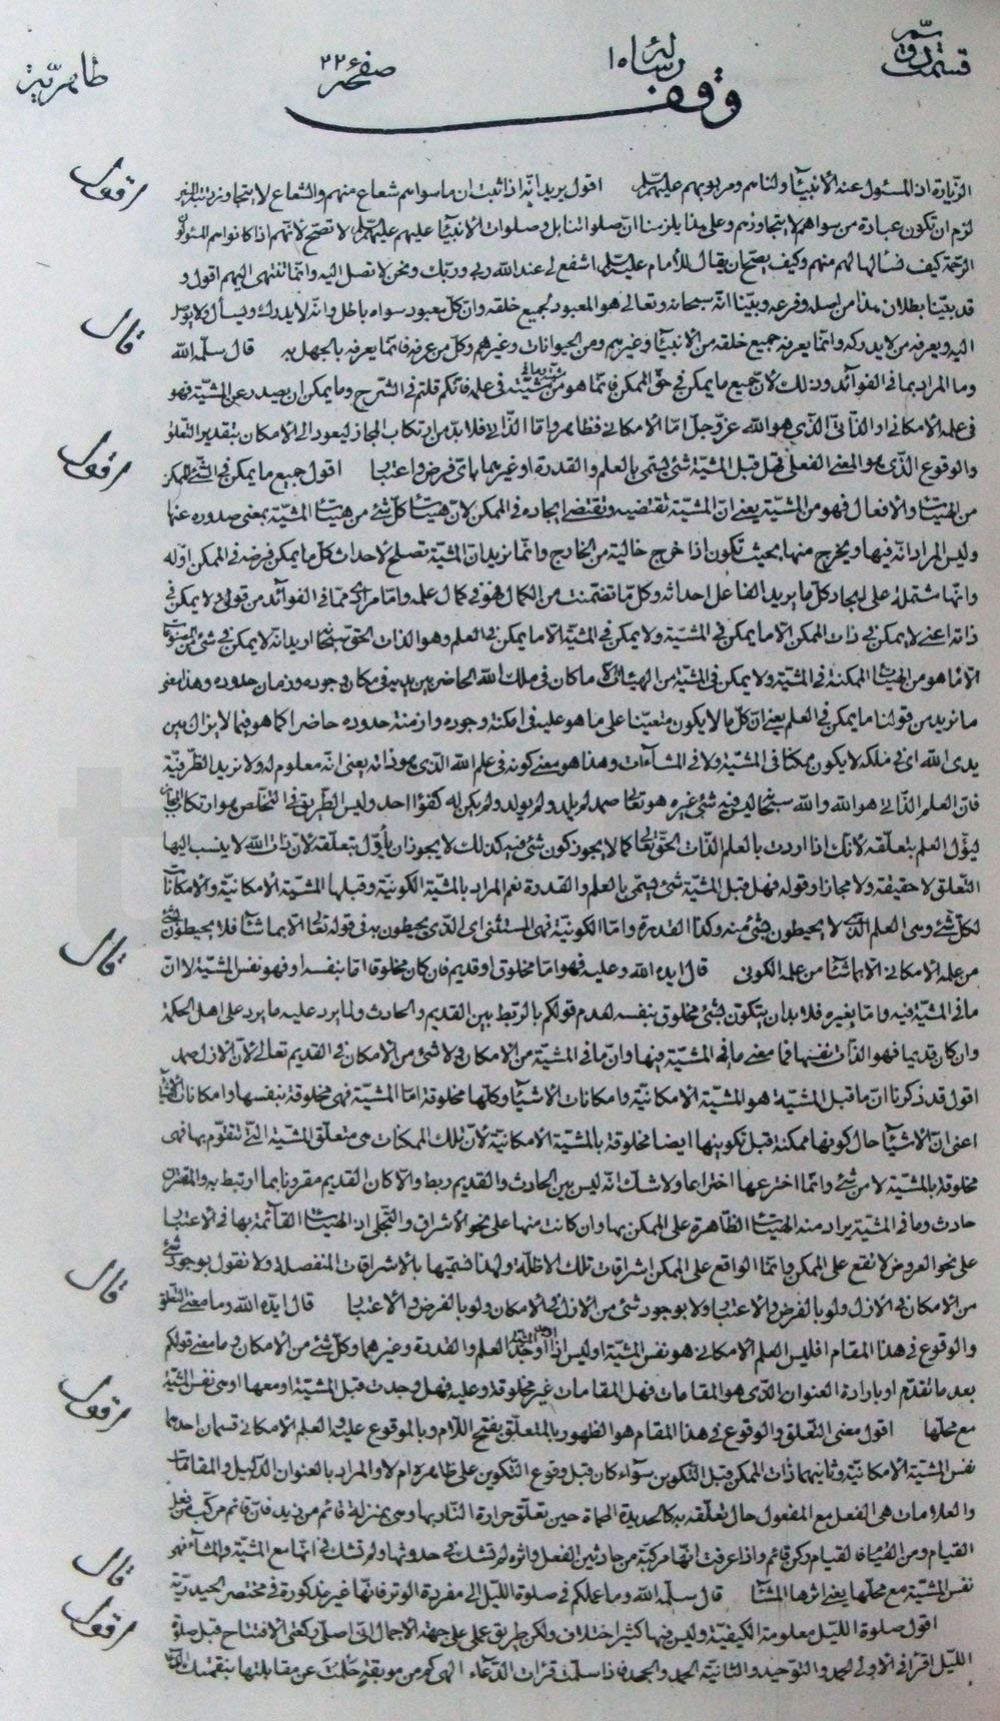 قسمت دوم رساله ١٥ صفحه ٢٢ طاهریّة
وقف
الزّيارة ان المسئول عنه الانبياء ولناهم ومربوبهم عليهم اقول يريد انّه اذا ثبت ان ما سواهم شعاع منهم والشعاع لا يتجاوز رتبة المنير
لزم ان تكون عبادة من سواهم لا يتجاوزهم وعلى هذا يلزمنا انّ صلواتنا بل وصلوات الانبياء عليهم عليهم لا تصحّ لانّهم اذا كانوا هم المسئولون
الرحمة كيف نسألها لهم منهم وكيف يصحّ ان يقال للامام عليه اشفع لي عند الله ربي وربّك ونحن لا نصل اليه وانّما تنتهى اليهم اقول و
قد بيّنّا بطلان هذا من اصله وفرعه وبيّنّا انّه سبحانه وتعالى هو المعبود لجميع خلقه وانّ كلّ معبود سواه باطل وانّه لا يدرك ويسأل ولا يوصل
اليه ويعرفه من لا يدركه وانّما يعرفه جميع خلقه من الانبياء وغيرهم ومن الحيوانات وغيرهم وكلّ من عرفه فانّما يعرفه بالجهل به قال سلّمه الله
وما المراد بما في الفوائد وذلك لانّ جميع ما يمكن في حقّ الممكن فانّما هو من مشيّته في علمه فانّكم قلتم في الشرح وما يمكن ان يصدر عن المشيّة فهو
في علمه الامكاني او الذّاتي الّذي هو الله عزّ وجلّ امّا الامكاني فظاهر وامّا الذّاتي فلا بدّ من ارتكاب المجاز ليعود الى الامكان بتقدير التعلّق
والوقوع الّذي هو المعنى الفعلي فهل قبل المشيّة شيء يسمّى بالعلم والقدرة او غيرهما باىّ فرض واعتبار اقول جميع ما يمكن في الشيء الممكن
من الهيئات والافعال فهو من المشيّة يعني انّ المشيّة تقتضيه وتقتضي ايجاده في الممكن لانّ هيئات كلّ شيء من هيئات المشيّة بمعنى صدوره عنها
وليس المراد انّه فيها ويخرج منها بحيث تكون اذا خرج خالية من الخارج وانّما نريد انّ المشيّة تصلح لاحداث كلّ ما يمكن فرضه في الممكن اوله
وانّها مشتملة على ايجاد كلّ ما يريد الفاعل احداثه وكلّ ما تضمّنت من الكمال فهو في كمال علمه وامّا مرادي ممّا في الفوائد من قولي ولا يمكن في
ذاته اعني لا يمكن في ذات الممكن الّا ما يمكن في المشيّة ولا يمكن في المشيّة الّا ما يمكن في العلم وهو الذات الحقّ سبحانه اريد انّه لا يمكن في شيء من
الّا ما هو من الهيئات الممكنة في المشيّة ولا يمكن في المشيّة من الهيئات الّا ما كان في ملك الله الحاضر بين يديه في مكان وجوده وزمان حدوده وهذا معنى
ما نريد من قولنا ما يمكن في العلم يعني انّ كلّ ما لا يكون متعيّنا على ما هو عليه في امكنة وجوده وازمنة حدوده حاضرا كما هو فيما لا يزال بين
يدى الله اى في ملكه لا يكون ممكنا في المشيّة ولا في المشاءات وهذا هو معنى كونه في علم الله الّذي هو ذاته يعني انّه معلوم له ولا نريد الظرفيّة
فانّ العلم الذّاتي هو الله والله سبحانه ليس فيه شيء غيره هو تعالى صمد لم يلد ولم يولد ولم يكن له كفوًا احد وليس الطريق في التخلّص هو ارتكاب المجاز
ليؤل العلم بتعلّقه لانّك اذا اردت بالعلم الذّات الحقّ تعالى كما لا يجوز كون شيء فيه كذلك لا يجوز ان يأوّل بتعلّقه لانّ ذات الله لا ينسب اليها
التعلّق لا حقيقة ولا مجازا وقوله فهل قبل المشيّة شيء يسمّى بالعلم والقدرة نعم المراد بالمشيّة الكونيّة وقبلها المشيّة الامكانيّة والامكانات
لكلّ شيء وهى العلم الّذي لا يحيطون بشيء منه وكذا القدرة وامّا الكونيّة فهى المستثنى اى الّذي يحيطون به في قوله تعالى الّا بما شاء فلا يحيطون بشيء
من علمه الامكاني الّا بما شاء من علمه الكوني قال ايده الله وعليه فهو امّا مخلوق او قديم فان كان مخلوقا امّا بنفسه او فهو نفس المشيّة لا انّ
ما في المشيّة فيه وامّا بغيره فلا بد ان يتكوّن بشيء مخلوق بنفسه لعدم قولكم بالربط بين القديم والحادث ولما يرد عليه ما يرد على اهل الحكمة
وان كان قديما فهو الذّات نفسها فما معنى ما في المشيّة فيها وانّ ما في المشيّة من الامكان ولا شيء من الامكان في القديم تعالى لانّ الازل صمد
اقول قد ذكرنا انّ ما قبل المشيّة هو المشيّة الامكانيّة وامكانات الاشياء وكلّها مخلوقة امّا المشيّة فهى مخلوقة بنفسها وامكانات الاشياء
اعنى انّ الاشياء حال كونها ممكنة قبل تكوينها ايضا مخلوقة بالمشيّة الامكانيّة لانّ تلك الممكنات هى متعلّق المشيّة الّتي تتقوّم بها فهى
مخلوقة بالمشيّة لا من شيء وانّما اخترعها اختراعا ولا شكّ انّه ليس بين الحادث والقديم ربط والّا كان القديم مقرونا بما ارتبط به والمقترن
حادث وما في المشيّة يراد منه الهيئات الظاهرة على الممكن بها وان كانت منها على نحو الاشراق والتجلّى اذ الهيئات القائمة بها في الاعتبار
على نحو العروض لا تقع على الممكن وانّما الواقع على الممكن اشراقات تلك الاظلّة ولهذا نسمّيها بالاشراقات المنفصلة ولا نقول بوجود شيء
من الامكان في الازل ولو بالفرض والاعتبار ولا بوجود شيء من الازل في الامكان ولو بالفرض والاعتبار قال ايده الله وما معنى التعلّق
والوقوع في هذا المقام افليس العلم الامكاني هو نفس المشيّة اوليس اذا اوجد العلم والقدرة وغيرهما وكلّ شيء من الامكان وما معنى قولكم
بعد ما تقدّم او بارادة العنوان الّذي هو المقامات فهل المقامات غير مخلوقة وعليه فهل وجدت قبل المشيّة او معها او هى نفس المشيّة
مع محلّها اقول معنى التعلّق والوقوع في هذا المقام هو الظهور بالمتعلّق بفتح اللام وبالموقوع عليه والعلم الامكاني قسمان احدهما
نفس المشيّة الامكانيّة وثانيهما ذات الممكن قبل التكوين سوآء كان قبل وقوع التكوين على ظاهره ام لا والمراد بالعنوان الدليل والمقامات
والعلامات هى الفعل مع المفعول حال تعلّقه به كالحديدة المحماة حين تعلّق حرارة النار بها وهى بمنزلة قائم من زيد فانّ قائم مركّب من فعل
القيام ومن القيام فالقيام ركن قائم واذا عرفت انّها مركّبة من حادثين الفعل واثره لم تشك في حدوثها ولم تشك في انّها مع المشيّة والمشاء فهو
نفس المشيّة مع محلّها يعني اثرها المشاء قال سلّمه الله وما عملكم في صلوة الليل الى مفردة الوتر فانّها غير مذكورة في مختصر الحيدريّة
اقول صلوة الليل معلومة الكيفيّة وليس فيها كثير اختلاف ولكن طريق عملى على جهة الاجمال انّى اصلّى ركعتى الافتتاح قبل صلوة
الليل اقرأ في الاولى الحمد والتوحيد والثانية الحمد والجحد فاذا سلّمت قرأت الدعاء الهى كم من موبقة حلمت عن مقابلتها بنقمتك
اقول
قال
اقول
قال
قال
اقول
قال
اقول